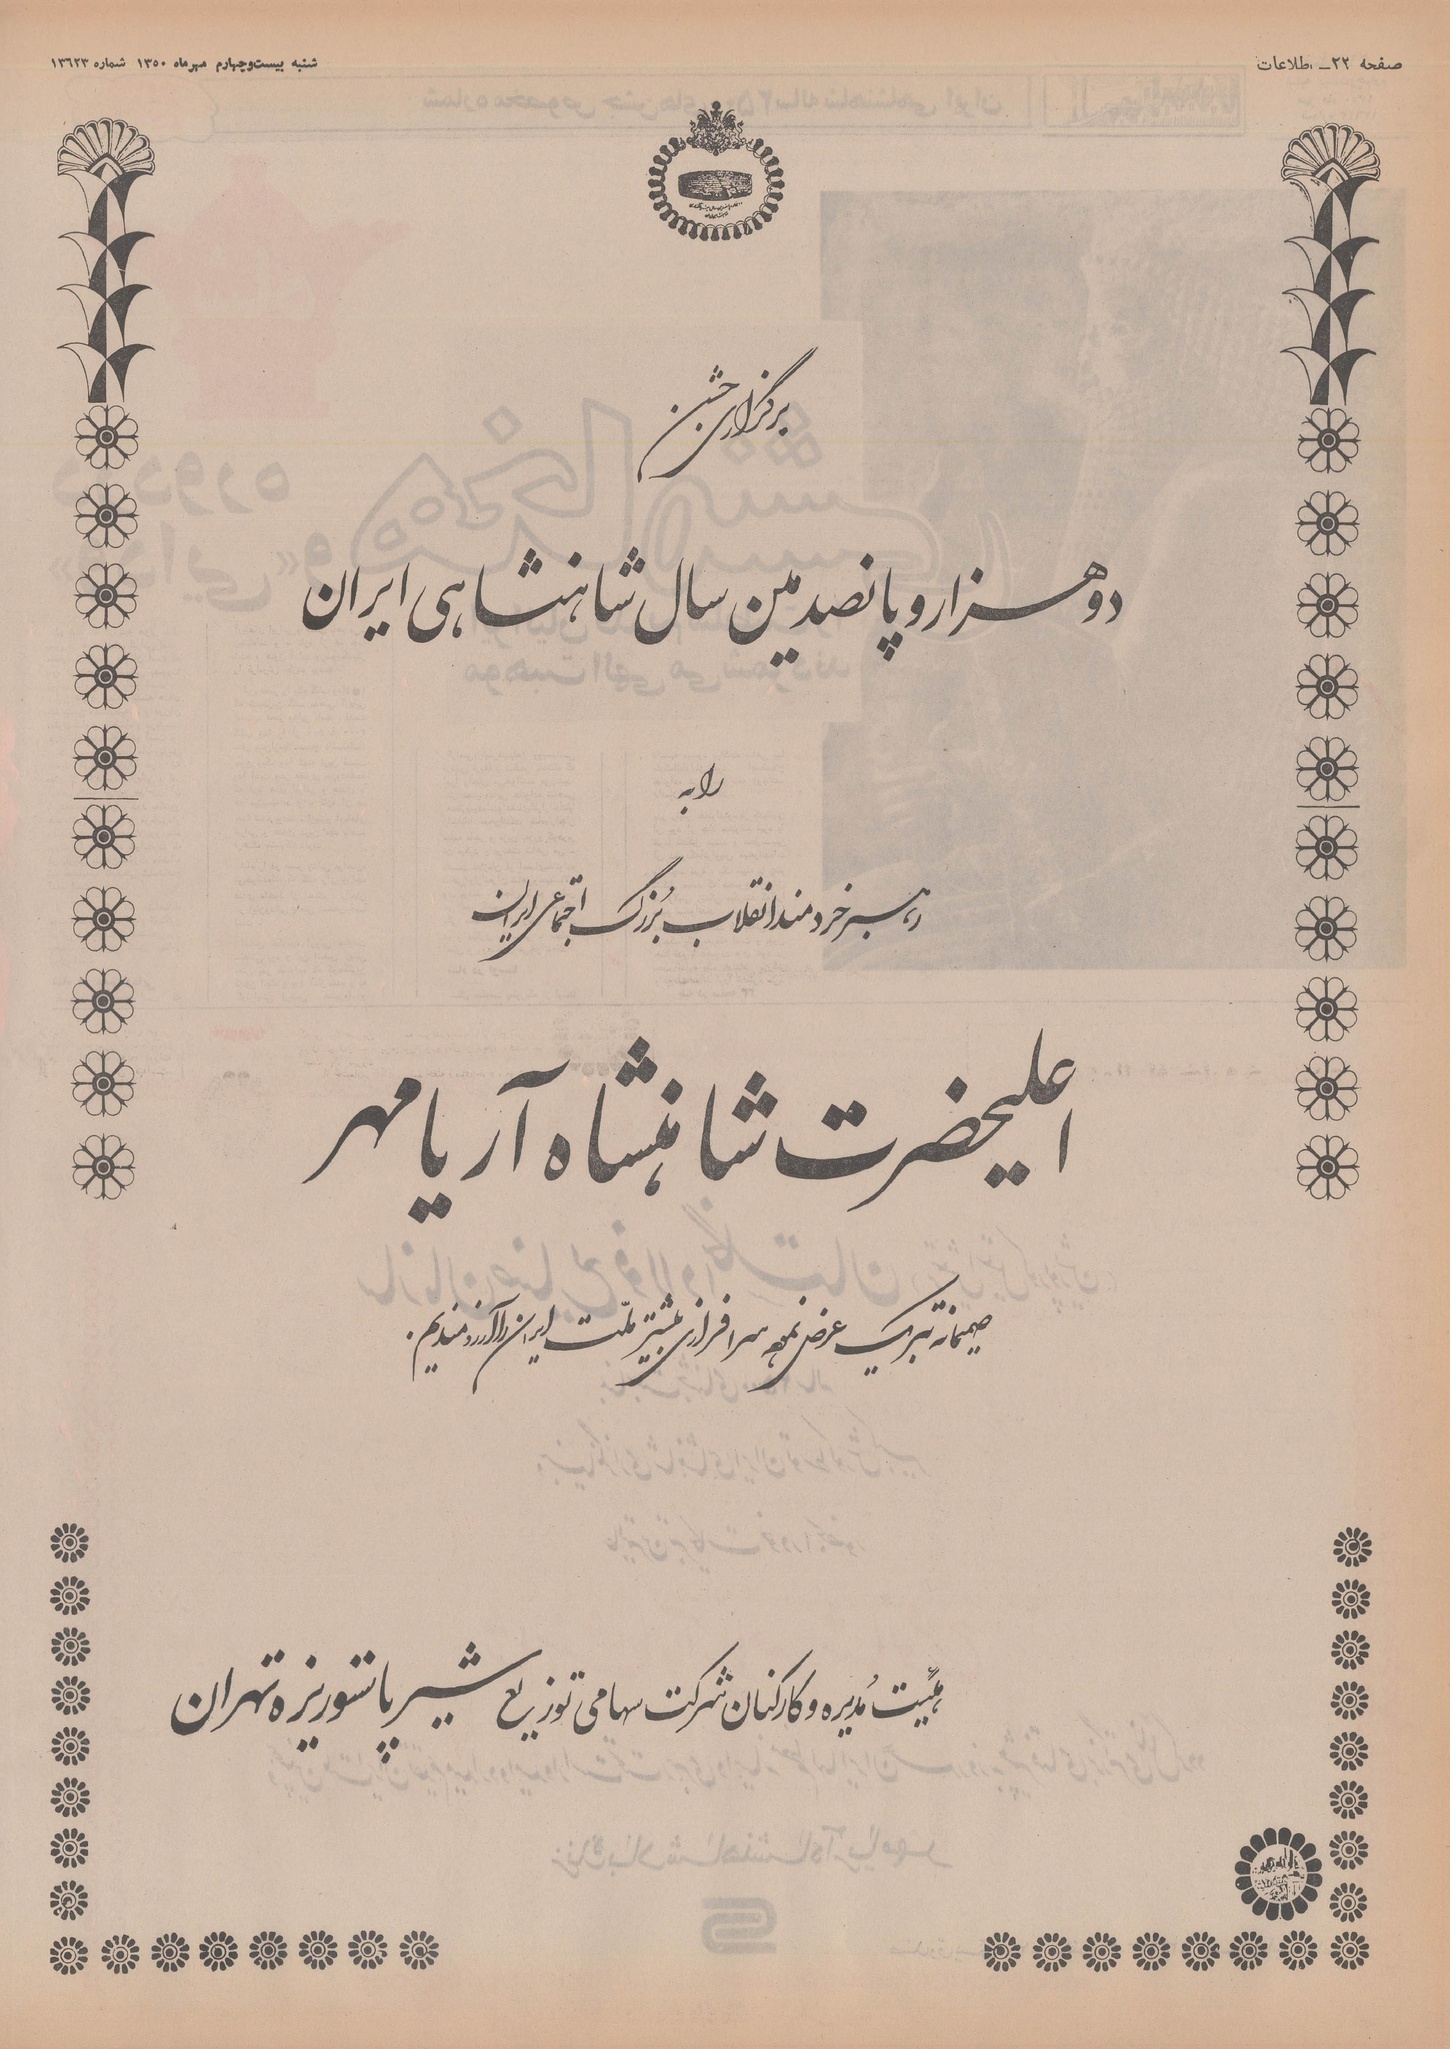 صفحه ۲۲ـ اطلاعات
شنبه بیست‌وچهارم مهرماه ۱۳۵۰ شماره ۱۳۶۲۳
برگزاری جشن
دوهزار و پانصدمین سال شاهنشاهی ایران
را به
رهبر خردمند انقلاب بُزرگ اجتماعی ایران
اعلیحضرت شاهنشاه آریامهر
صمیمانه تبریک عرض نموده سرافرازی بیشتر ملّت ایران را آرزومندیم.
هیئت مُدیره و کارکنان شرکت سهامی توزیع شیر پاستوریزه تهران